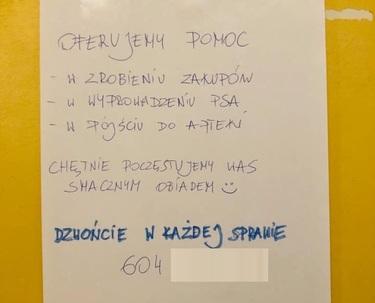 OFERUJEMY POMOC
- W ZROBIENIU ZAKUPÓW
- W WYPROWADZENIU PSA
- W PÓJŚCIU DO APTEKI
CHĘTNIE POCZĘSTUJEMY WAS
SMACZNYM OBIADEM
DZWOŃCIE W KAŻDEJ SPRAWIE
604